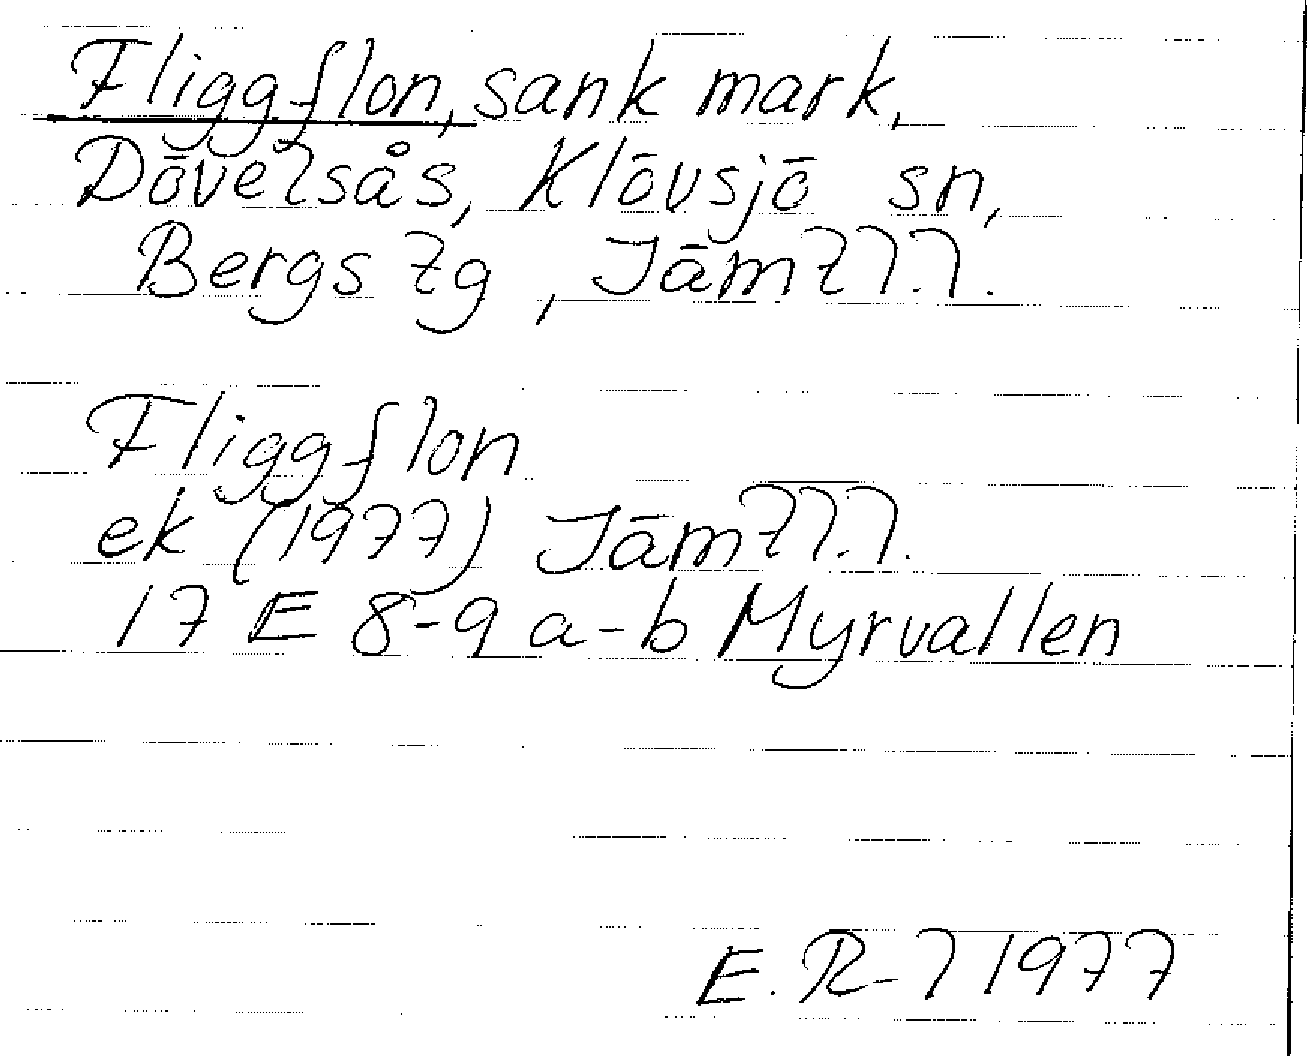 Fliggflon, sank mark,
Dövelsås, Klövsjö sn,
Bergs tg, Jämtl.l.
Fliggflon
ek (1977) Jämtl.l.
17 E 8-9 a-b Myrvallen
E. R-l 1977